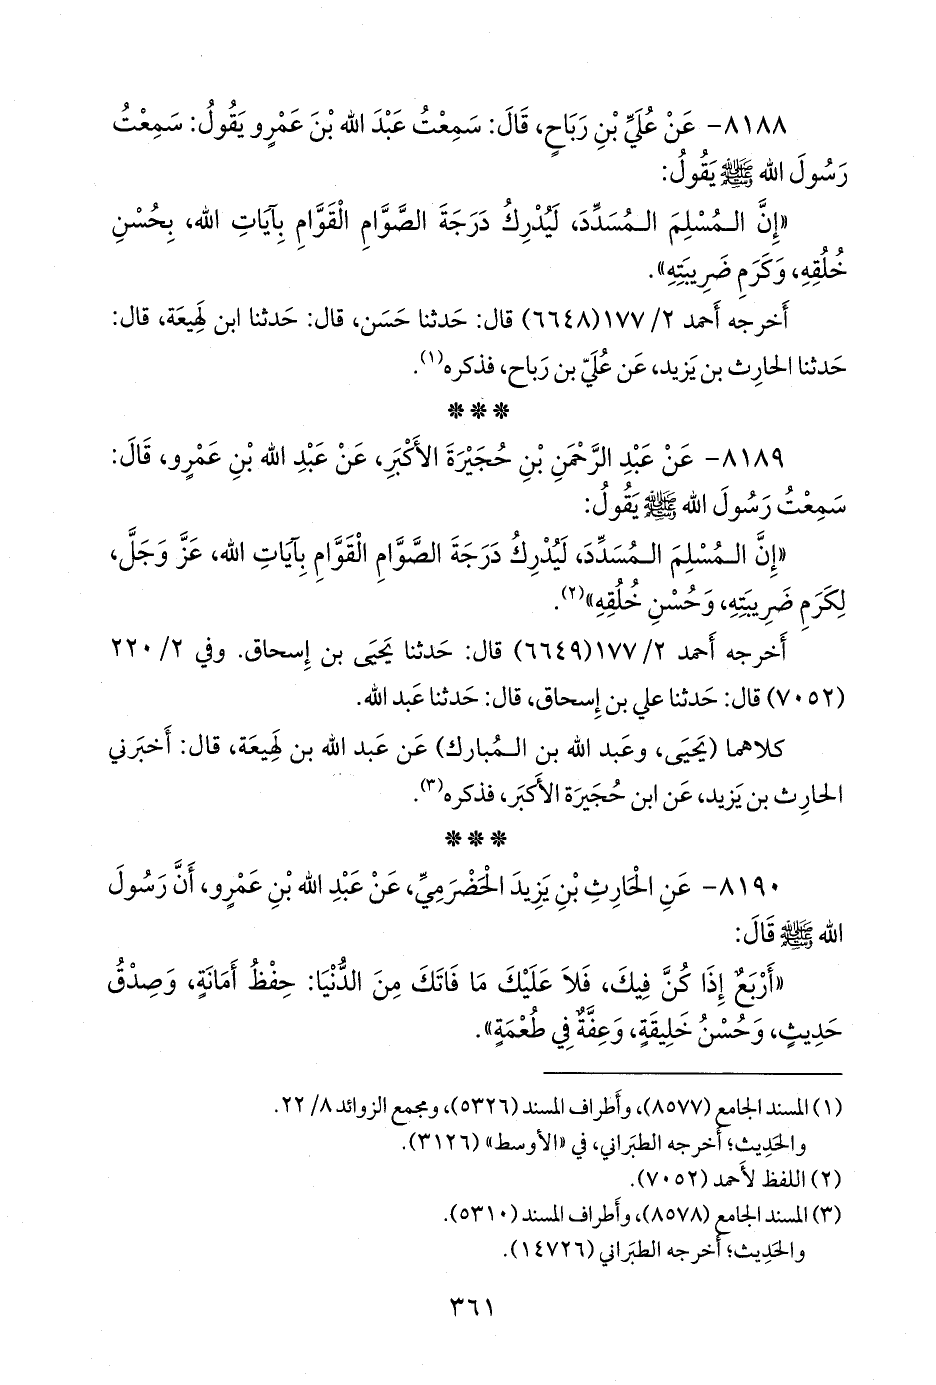 ٨١٨٨- عَنْ عُلَيِّ بْنِ رَبَاحٍ، قَالَ: سَمِعْتُ عَبْدَ الله بْنَ عَمْرٍو يَقُولُ: سَمِعْتُ
رَسُولَ الله ﷺ يَقُولُ:
«إِنَّ الـمُسْلِمَ الـمُسَدِّدَ، لَيُدْرِكُ دَرَجَةَ الصَّوَّامِ الْقَوَّامِ بِآيَاتِ الله، بِحُسْنِ
خُلُقِهِ، وَكَرَمِ ضَرِيبَتِهِ».
أَخرجه أَحمد ٢/ ١٧٧(٦٦٤٨) قال: حَدثنا حَسَن، قال: حَدثنا ابن لَهِيعَة، قال:
حَدثنا الحارِث بن يَزيد، عَن عُلَيّ بن رَباح، فذكره(١).
***
٨١٨٩- عَنْ عَبْدِ الرَّحْمَنِ بْنِ حُجَيْرَةَ الأَكْبَرِ، عَنْ عَبْدِ الله بْنِ عَمْرٍو، قَالَ:
سَمِعْتُ رَسُولَ الله ﷺ يَقُولُ:
«إِنَّ الـمُسْلِمَ الـمُسَدِّدَ، لَيُدْرِكُ دَرَجَةَ الصَّوَّامِ الْقَوَّامِ بِآيَاتِ الله، عَزَّ وَجَلَّ،
لِكَرَمِ ضَرِيبَتِهِ، وَحُسْنِ خُلُقِهِ»(٢).
أَخرجه أَحمد ٢/ ١٧٧(٦٦٤٩) قال: حَدثنا يَحيَى بن إِسحاق. وفي ٢/ ٢٢٠
(٧٠٥٢) قال: حَدثنا علي بن إِسحاق، قال: حَدثنا عَبد الله.
كلاهما (يَحيَى، وعَبد الله بن الـمُبارك) عَن عَبد الله بن لَهِيعَة، قال: أَخبَرني
الحارِث بن يَزيد، عَن ابن حُجَيرَة الأَكبَر، فذكره(٣).
***
٨١٩٠- عَنِ الْحَارِثِ بْنِ يَزِيدَ الْحَضْرَمِيِّ، عَنْ عَبْدِ الله بْنِ عَمْرٍو، أَنَّ رَسُولَ
الله ﷺ قَالَ:
«أَرْبَعٌ إِذَا كُنَّ فِيكَ، فَلاَ عَلَيْكَ مَا فَاتَكَ مِنَ الدُّنْيَا: حِفْظُ أَمَانَةٍ، وَصِدْقُ
حَدِيثٍ، وَحُسْنُ خَلِيقَةٍ، وَعِفَّةٌ فِي طُعْمَةٍ».
(١) المسند الجامع (٨٥٧٧)، وأَطراف المسند (٥٣٢٦)، ومجمع الزوائد ٨/ ٢٢.
والحَدِيث؛ أَخرجه الطبَراني، في «الأوسط» (٣١٢٦).
(٢) اللفظ لأَحمد (٧٠٥٢).
(٣) المسند الجامع (٨٥٧٨)، وأَطراف المسند (٥٣١٠).
والحَدِيث؛ أَخرجه الطبَراني (١٤٧٢٦).
٣٦١